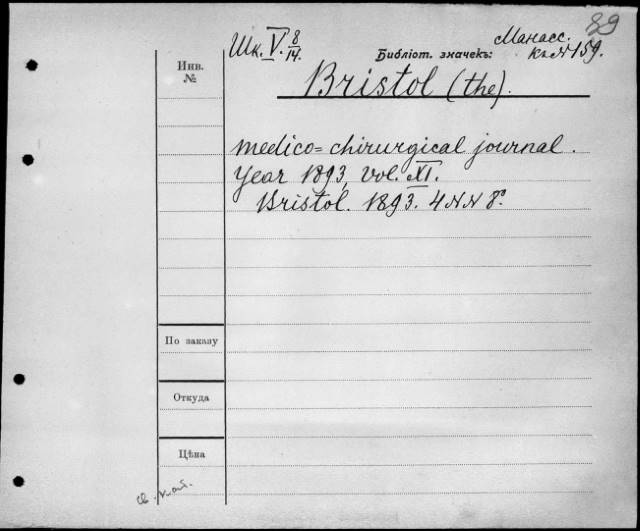 89
Шк. V. 8/14.
Манасс.
Библіот. значекъ: къ N 159.
Инв. №
Bristol (the).
medico=chirurgical journal.
Year 1893, vol. XI.
Bristol. 1893. 4 NN 8°.
По заказу
Откуда
Цѣна